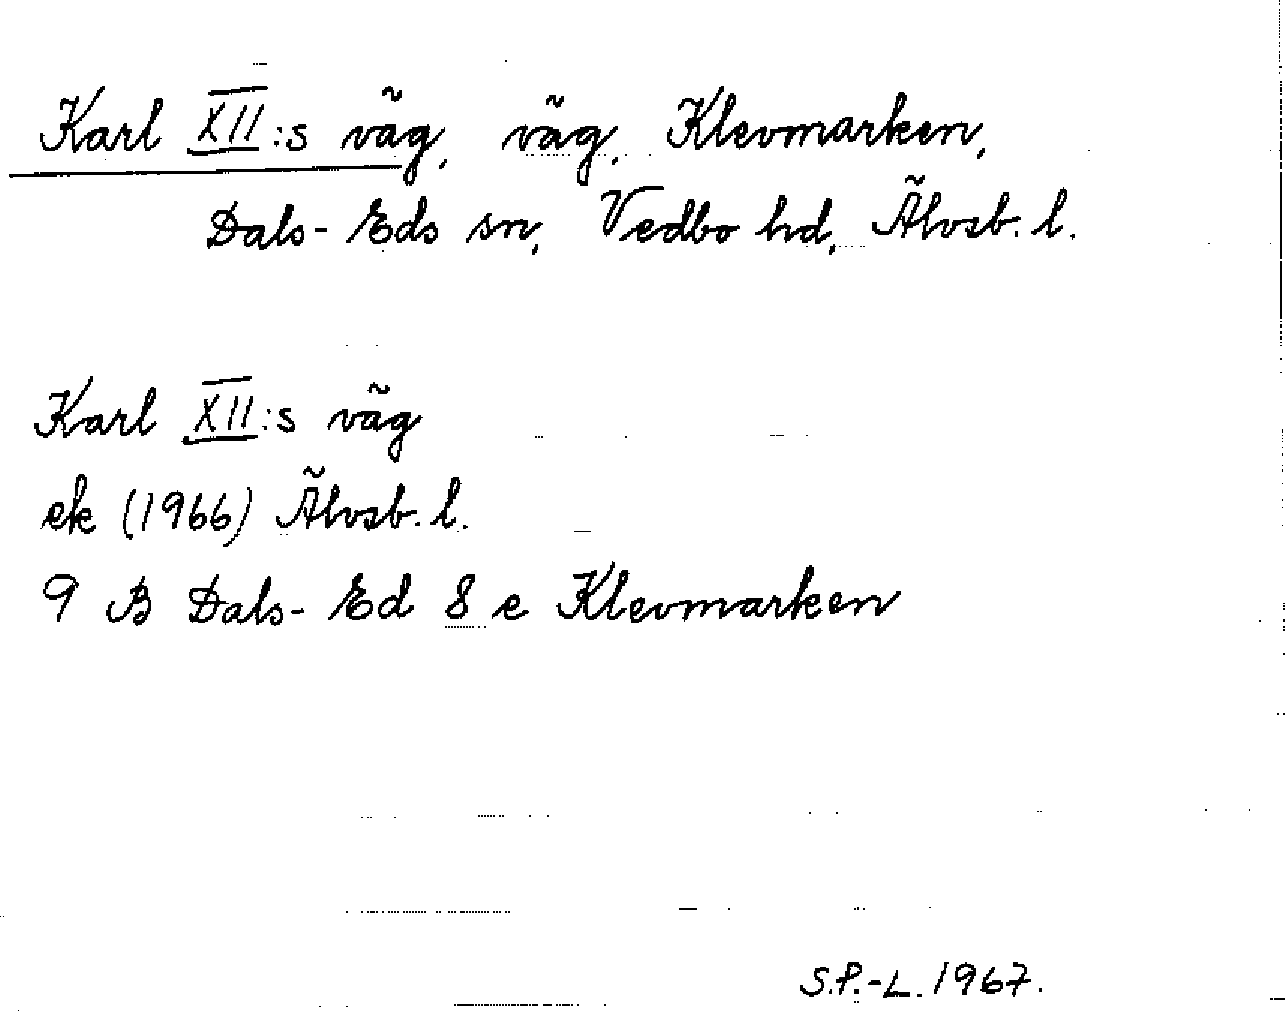 Karl XII:s väg, väg, Klevmarken,
Dals-Eds sn, Vedbo hd, Älvsb. l.
Karl XII:s väg
ek (1966) Älvsb. l.
9 B Dals-Ed 8 e Klevmarken
S.P.-L. 1967.